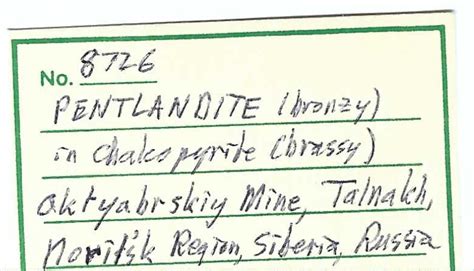 No. 8726
PENTLANDITE (bronzy)
in chalcopyrite (brassy)
Oktyabrskiy Mine, Talnakh,
Noril'sk Region, Siberia, Russia